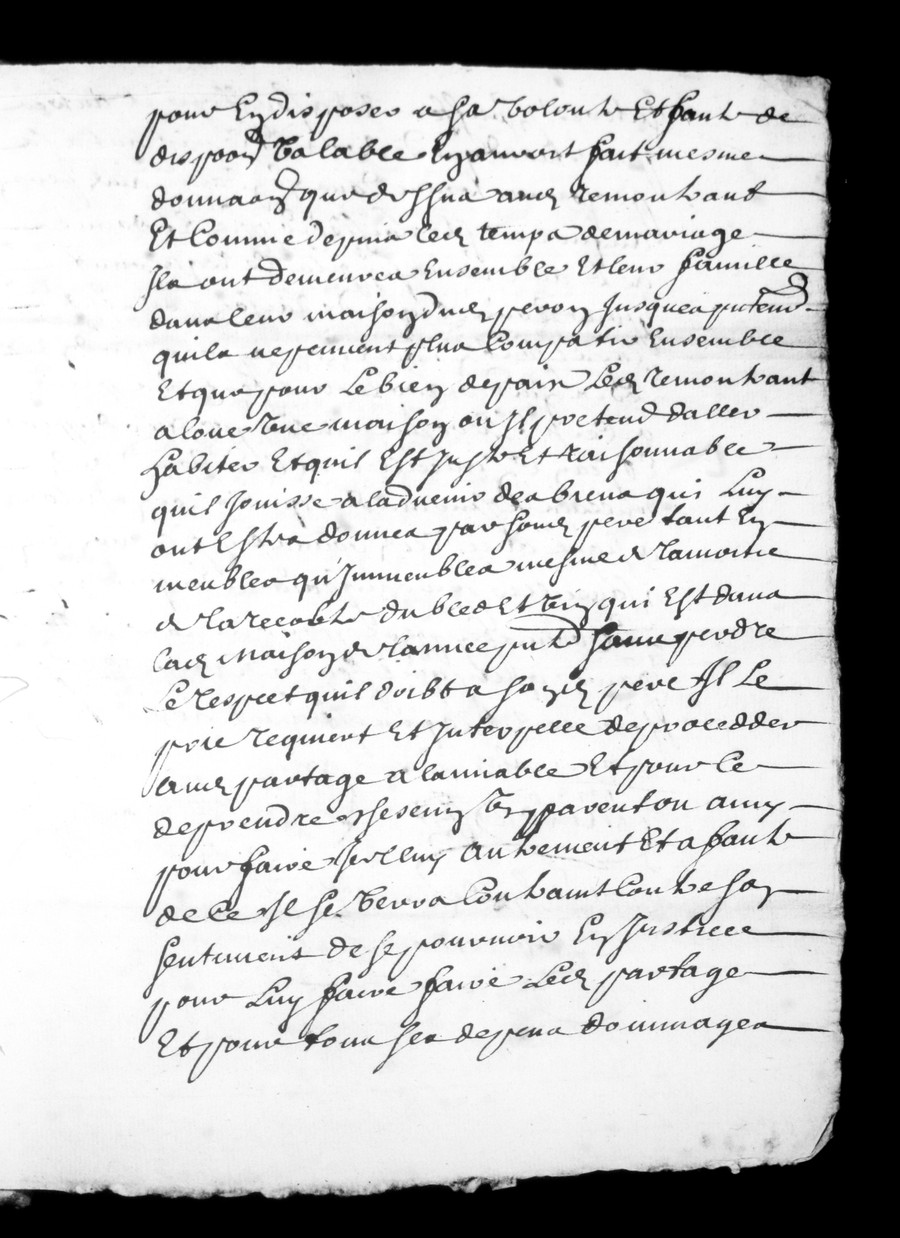 pour En disposer a sa volonte Et faute de
dispoon valable En auroit fait mesme
donnaon que dessus aud remontrant
Et Comme depuis led temps de mariage
Ils ont demeures Ensemble Et leur famille
dans leur maison dud peron Jusques a pntemt
quils ne peuvent plus Compatir Ensemble
Et que pour Le bien de paix Led remontrant
a loue Une maison ou Il pretend daller
habiter Et quil Est Juste Et Raisonnable
quil Jouisse a ladvenir des biens qui Luy
ont Estes donnes par sond pere tant En
meubles qu'Immeubles mesme de la moitie
de la recolte du bled Et vin qui Est dans
lad Maison de lannee pnte sans perdre
Le respect quil doibt a son d pere Il Le
prie requiert Et Interpelle de procedder
aud partage a lamiable Et pour Ce
de prendre chescun Un parent ou amy
pour faire Icelluy autrement Et a faute
de Ce Il se Verra Contraint Contre son
sentiment de se pourvoir En Justice
pour Luy faire faire Led partage
Et pour tous ses depens dommages